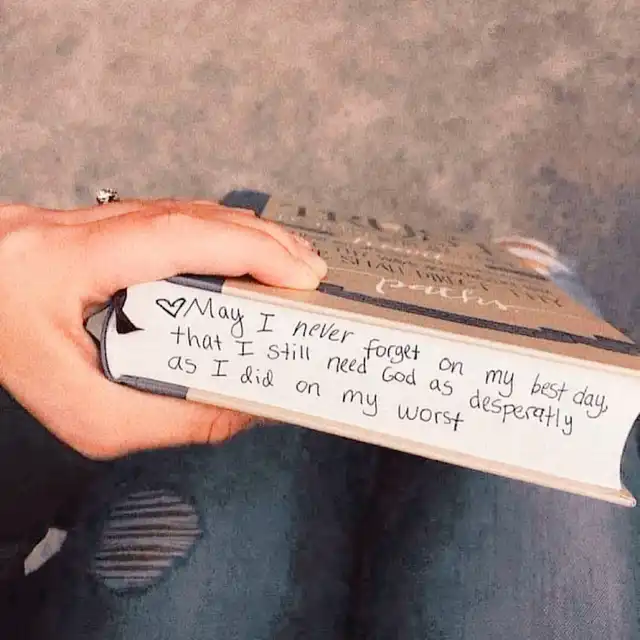 ♡May I never forget on my best day,
that I still need God as desperatly
as I did on my worst
SHALL DIRECT THY
paths